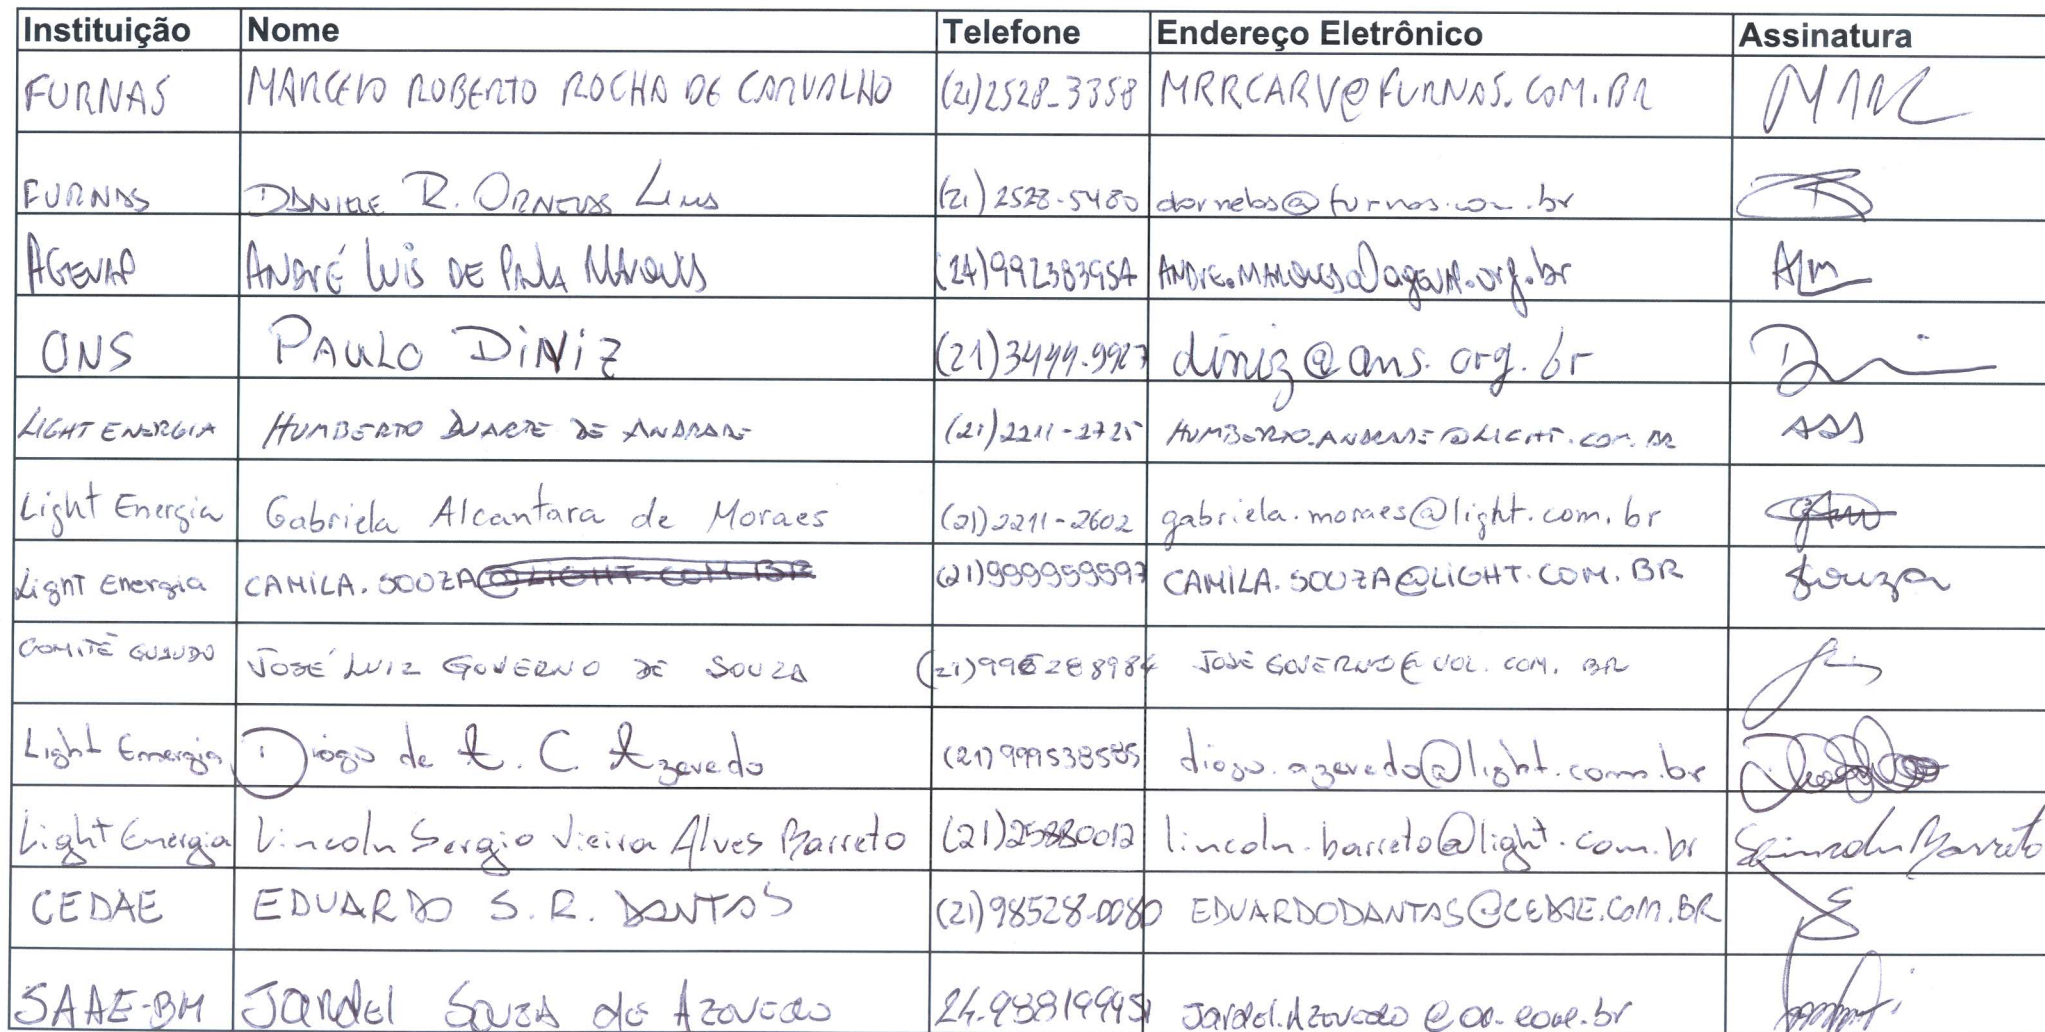 Instituição Nome Telefone Endereço Eletrônico Assinatura
FURNAS MARCELO ROBERTO ROCHA DE CARVALHO (21)2528-3358 MRRCARV@FURNAS.COM.BR
FURNAS DANIELE R. ORNELAS LIMA (21)2528-5480 dornelas@furnas.com.br
AGEVAP ANDRÉ LUIS DE PAULA MARQUES (24)992383954 ANDRE.MARQUES@agevap.org.br
ONS PAULO DINIZ (21)3444-9927 diniz@ons.org.br
LIGHT ENERGIA HUMBERTO DUARTE DE ANDRADE (21)2211-2725 HUMBERTO.ANDRADE@LIGHT.COM.BR
Light Energia Gabriela Alcantara de Moraes (21)2211-2602 gabriela.moraes@light.com.br
Light Energia CAMILA.SOUZA@LIGHT.COM.BR (21)999959597 CAMILA.SOUZA@LIGHT.COM.BR Souza
COMITÊ GUANDU JOSÉ LUIZ GOVERNO DE SOUZA JOSEGOVERNO@UOL.COM.BR
Light Energia Diogo de A. C. Azevedo (21)999538585 diogo.azevedo@light.com.br
Light Energia Lincoln Sergio Vieira Alves Barreto lincoln.barreto@light.com.br Lincoln Barreto
CEDAE EDUARDO S. R. DANTAS (21)98528-0080 EDUARDODANTAS@CEDAE.COM.BR
SAAE-BM Jardel Souza de Azevedo